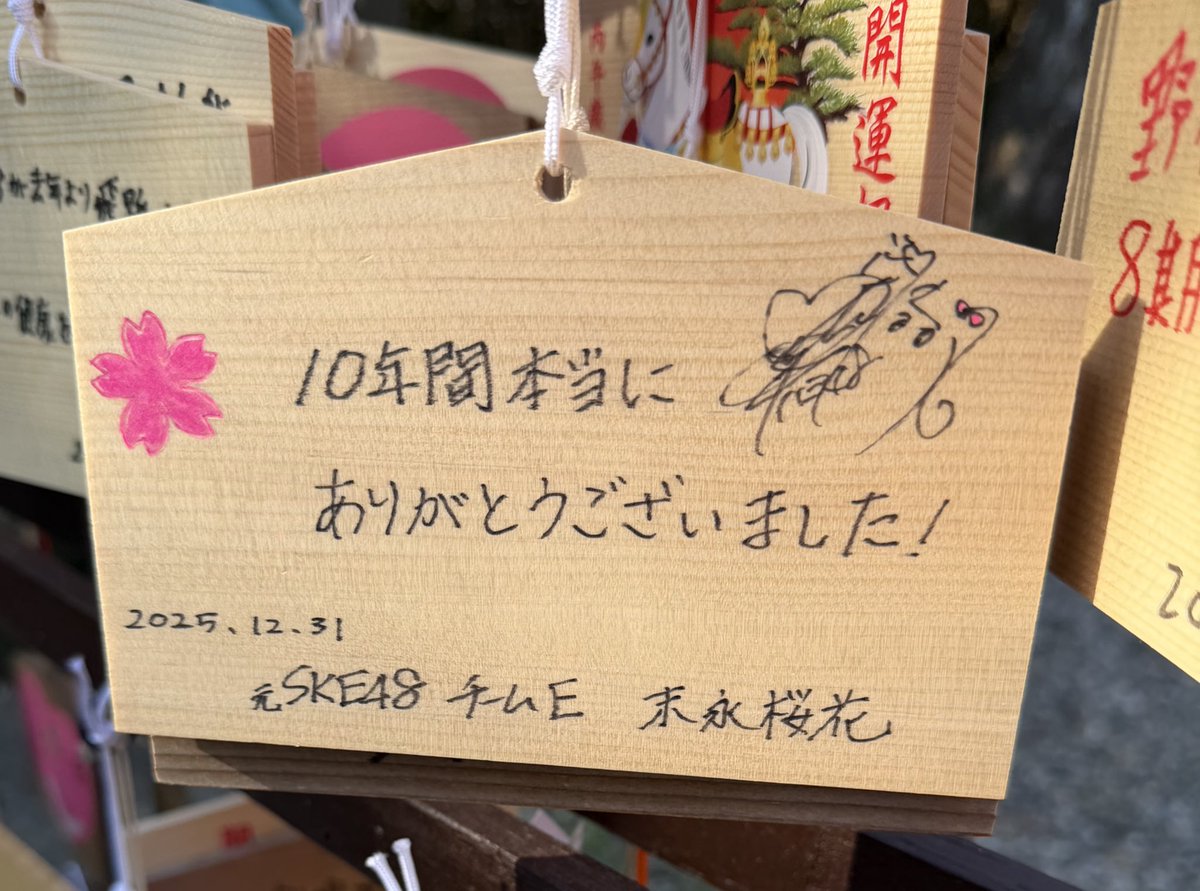 10年間本当に
ありがとうございました!
2025.12.31
元SKE48 チームE 末永桜花
開運
野
8期
が去年より
の健康を